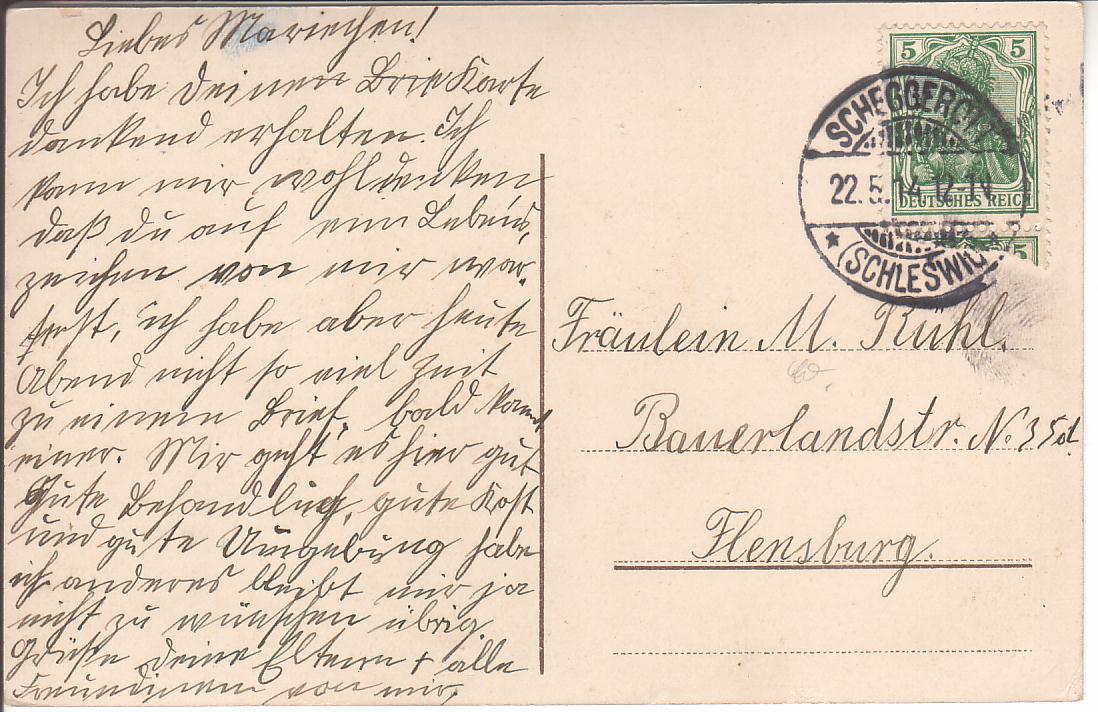 Liebes Mariechen!
Ich habe deinen Brief Karte
dankend erhalten. Ich
kann mir wohl denken
daß du auf ein Lebens,
zeichen von mir war,
test, ich habe aber heute
Abend nicht so viel Zeit
zu einem Brief, bald kommt
einer. Mir geht es hier gut
Gute Behandlug, gute Kost
und gute Umgebung habe
ich anderes bleibt mir ja
nicht zu wünschen übrig.
Grüße deine Eltern + alle
Freundinnen von mir.
5 5
DEUTSCHES REICH
5
SCHEGGEROTT
22.5.14.12-1N
* (SCHLESWIG)
Fräulein M. Ruhl.
Bauerlandstr. No 35d.
Flensburg.